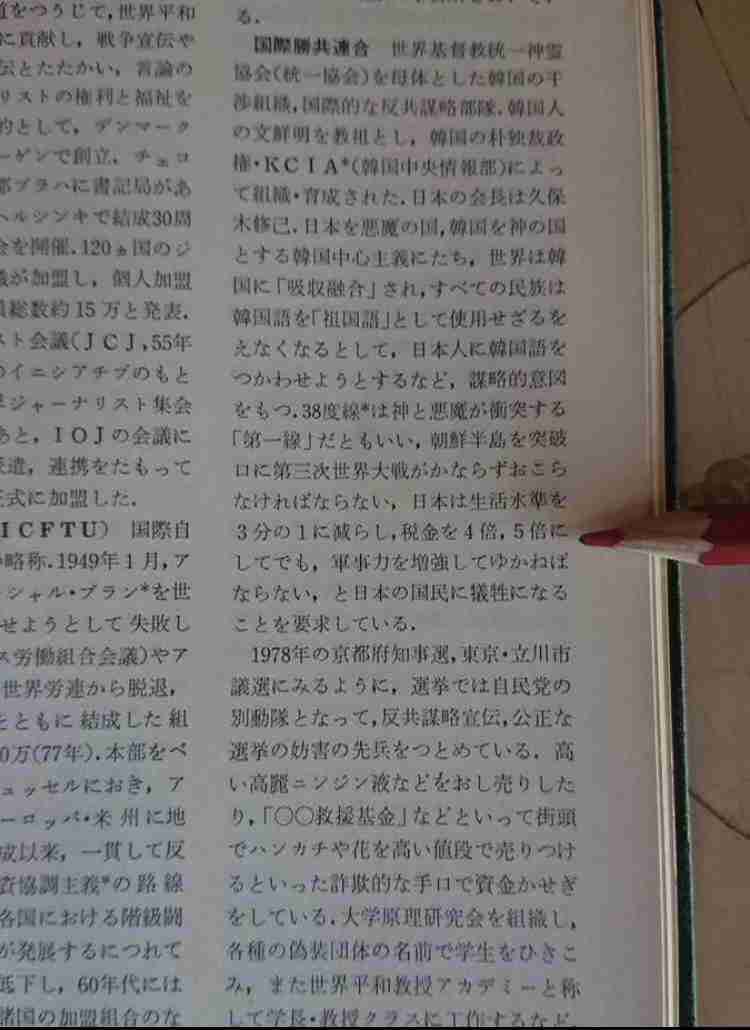 道をつうじて,世界平和
に貢献し，戦争宣伝や
伝とたたかい，言論の
リストの権利と福祉を
的として，デンマーク
ーゲンで創立．チェコ
都プラハに書記局があ
ヘルシンキで結成30周
会を開催.120ヵ国のジ
議が加盟し，個人加盟
員総数約15万と発表.
スト会議(ＪＣＪ,55年
のイニシアチブのもと
界ジャーナリスト集会
あと，ＩＯＪの会議に
派遣，連携をたもって
正式に加盟した．
ＩＣＦＴＵ）　国際自
略称.1949年１月,ア
シャル・プラン*を世
せようとして失敗し
ス労働組合会議)やア
世界労連から脱退，
とともに結成した組
0万(77年).本部をベ
ュッセルにおき，ア
ーロッパ・米州に地
成以来，一貫して反
資協調主義*の路線
各国における階級闘
が発展するにつれて
低下し，60年代には
諸国の加盟組合のな
る．
国際勝共連合　世界基督教統一神霊
協会(統一協会)を母体とした韓国の干
渉組織,国際的な反共謀略部隊.韓国人
の文鮮明を教祖とし，韓国の朴独裁政
権・ＫＣＩＡ*(韓国中央情報部)によっ
て組織・育成された.日本の会長は久保
木修己．日本を悪魔の国,韓国を神の国
とする韓国中心主義にたち，世界は韓
国に「吸収融合」され,すべての民族は
韓国語を「祖国語」として使用せざるを
えなくなるとして，日本人に韓国語を
つかわせようとするなど，謀略的意図
をもつ.38度線*は神と悪魔が衝突する
「第一線」だともいい，朝鮮半島を突破
口に第三次世界大戦がかならずおこら
なければならない，日本は生活水準を
３分の１に減らし,税金を４倍,５倍に
してでも，軍事力を増強してゆかねば
ならない，と日本の国民に犠牲になる
ことを要求している．
1978年の京都府知事選,東京・立川市
議選にみるように，選挙では自民党の
別動隊となって,反共謀略宣伝,公正な
選挙の妨害の先兵をつとめている．高
い高麗ニンジン液などをおし売りした
り,「〇〇救援基金」などといって街頭
でハンカチや花を高い値段で売りつけ
るといった詐欺的な手口で資金かせぎ
をしている.大学原理研究会を組織し,
各種の偽装団体の名前で学生をひきこ
み，また世界平和教授アカデミーと称
して学長・教授クラスに工作するなど